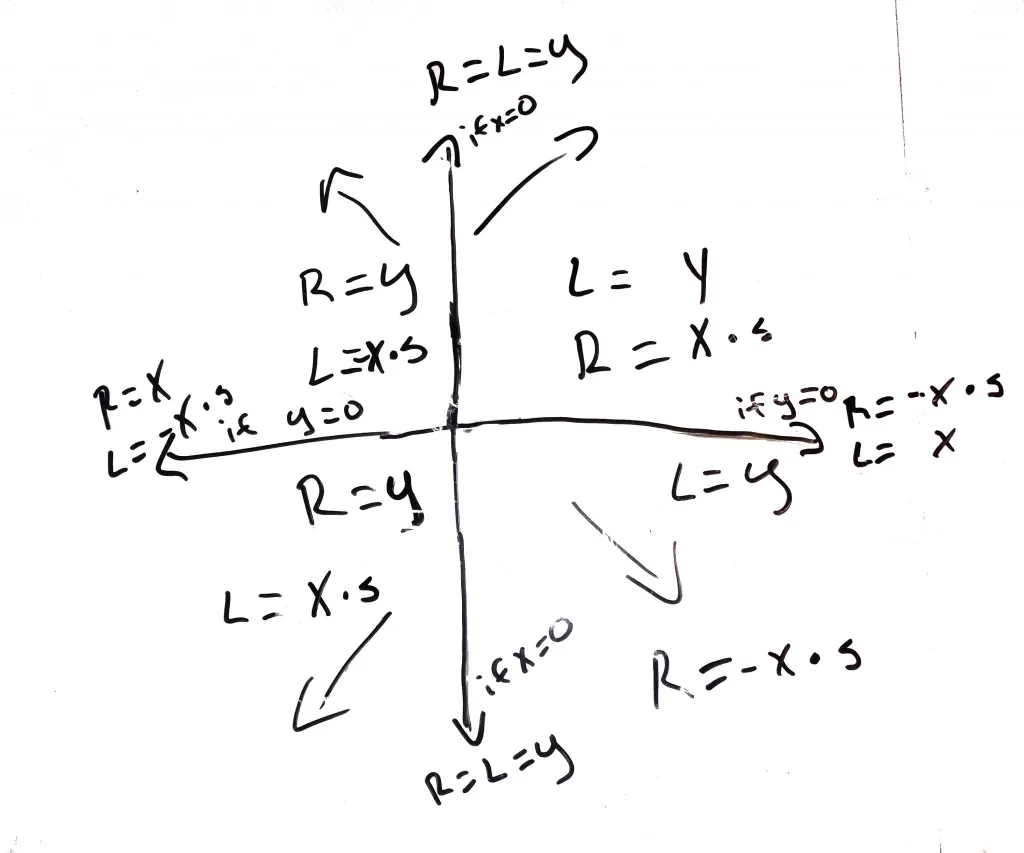 R=L=y
if x=0
R=y
L=x.s
L= Y
R=X.s
R=X
L=-X.s
if y=0
if y=0
R=-x.s
L= X
R=y
L=y
L= X.s
R=-x.s
if x=0
R=L=y